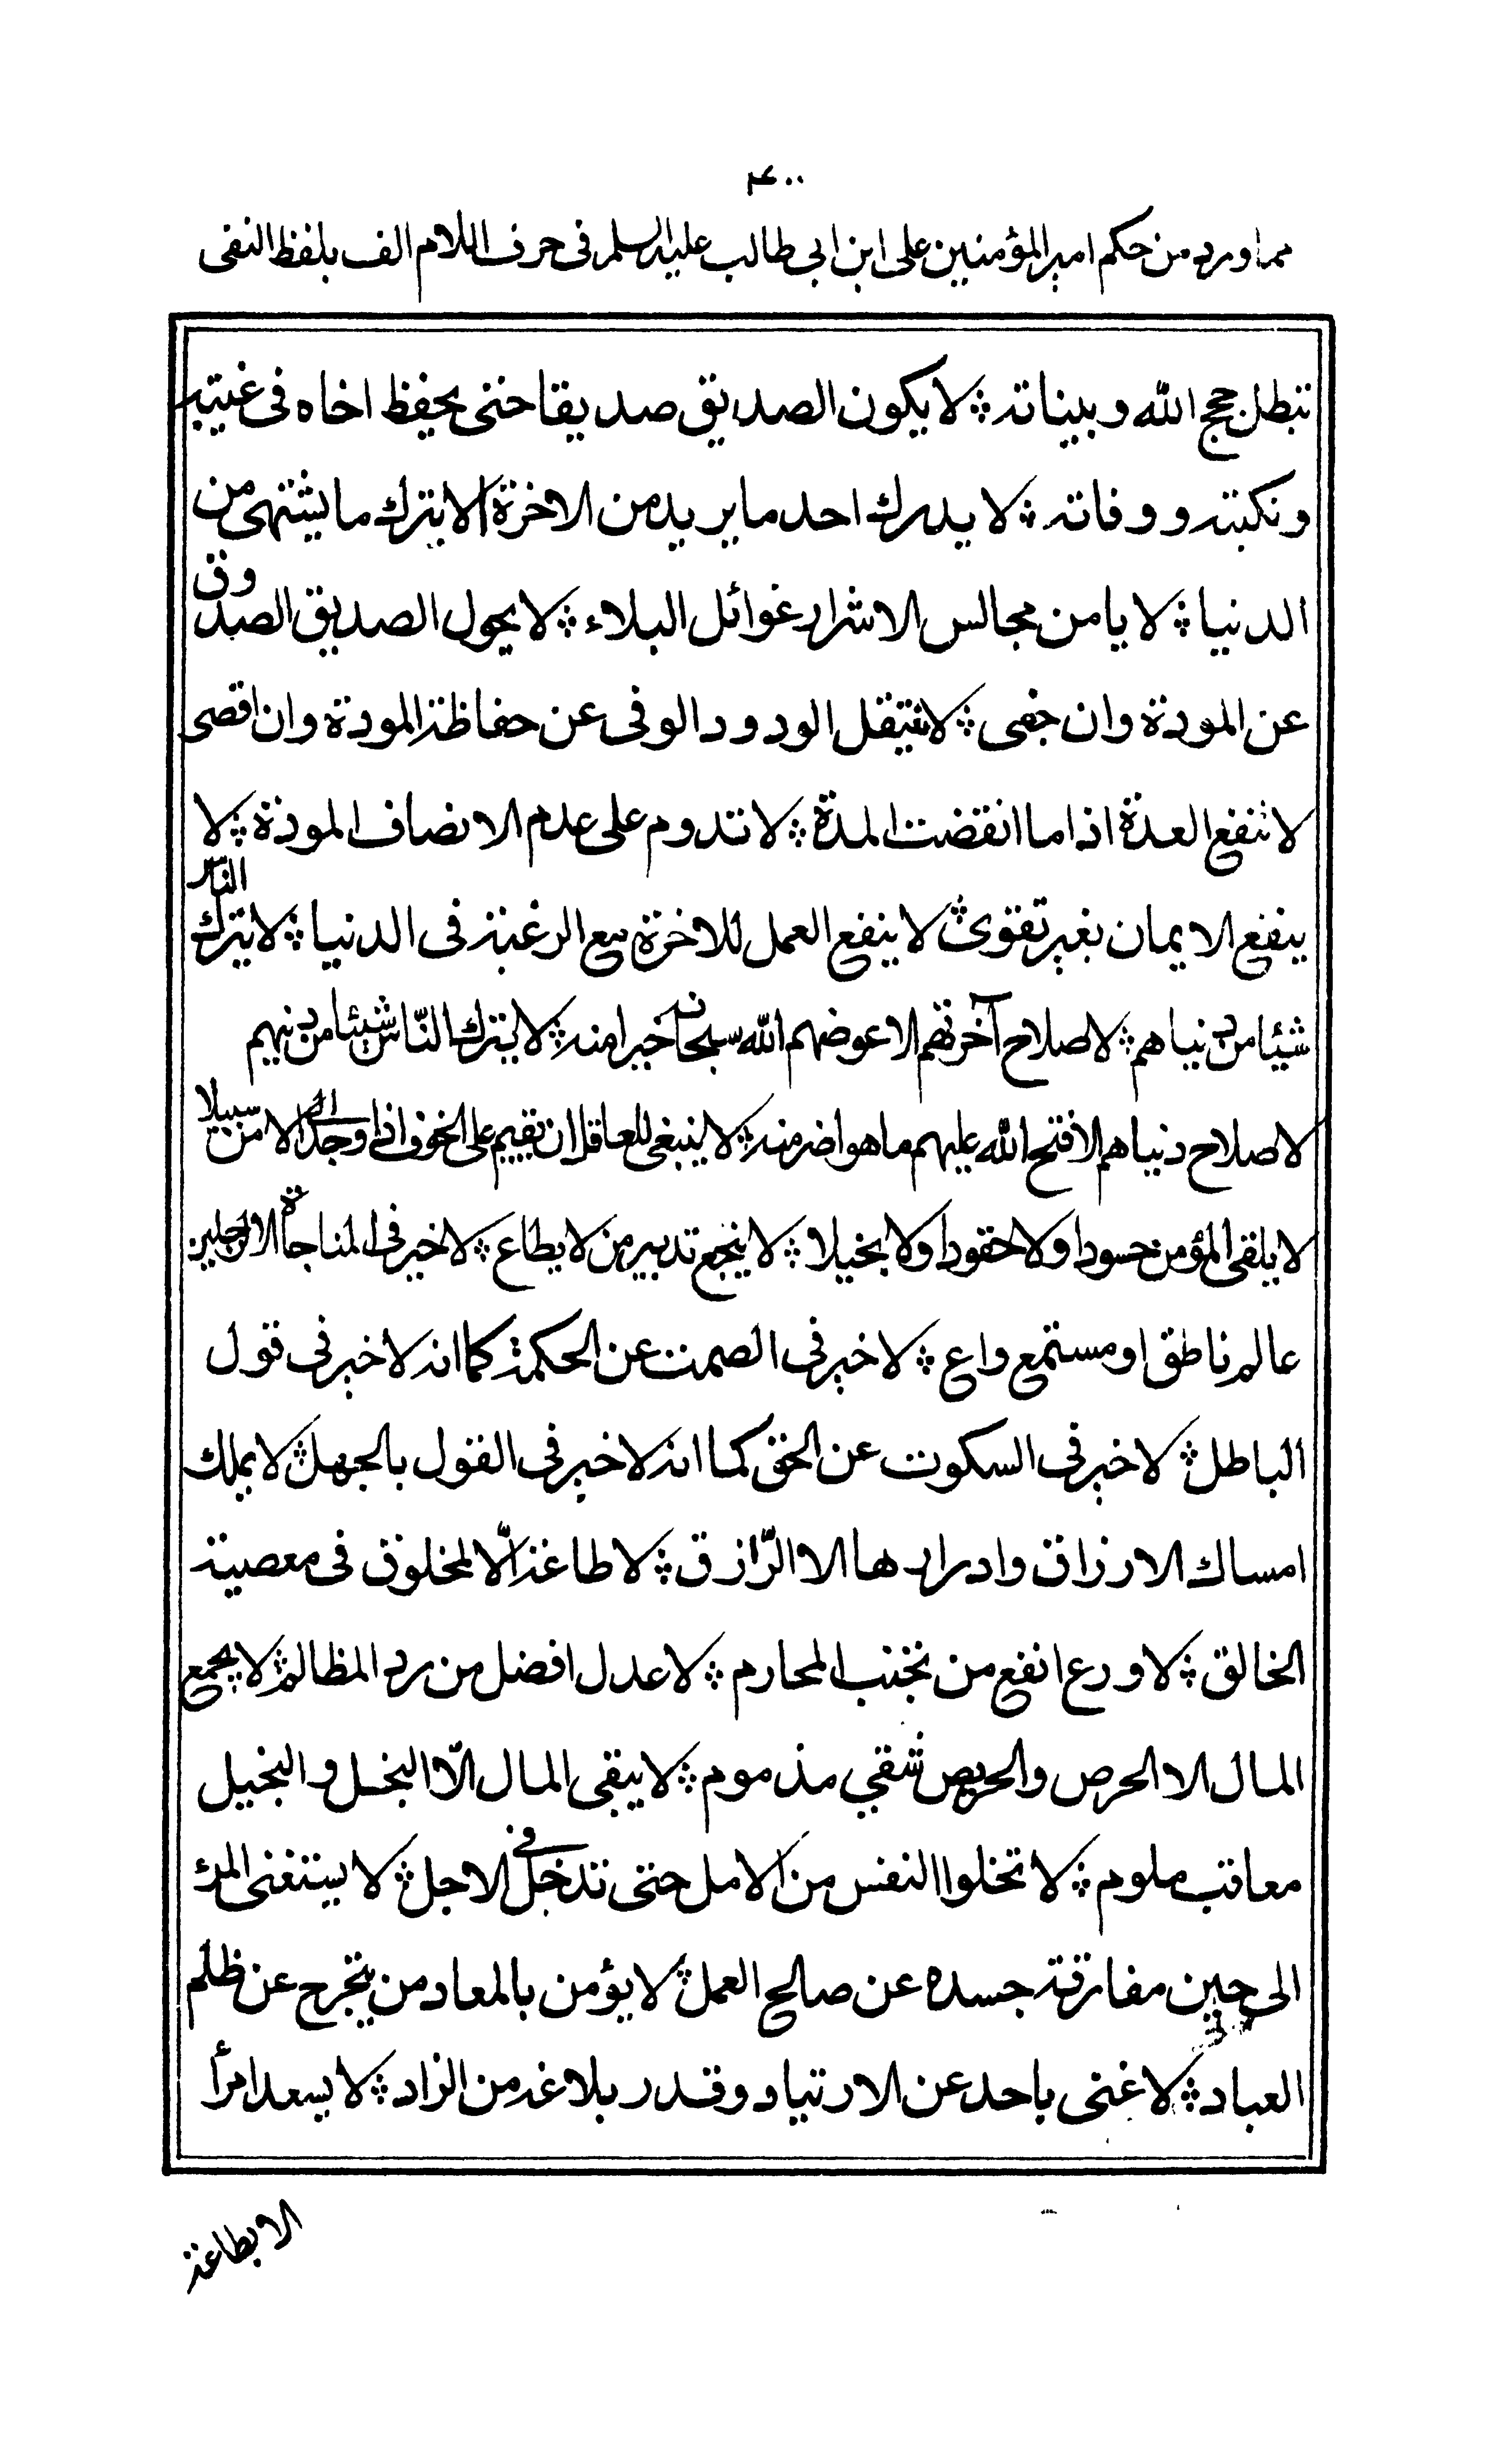 ۴۰۰
مما ورد من حكم امير المؤمنين على ابن ابى طالب عليه السلم فى حرف اللام الف بلفظ النفى
تبطل حجج الله وبيناته ؞ لا يكون الصديق صديقا حتى يحفظ اخاه فى غيبته
ونكبته ووفاته ؞ لا يدرك احد ما يريد من الاخرة الا بترك ما يشتهى من
الدنيا ؞ لا يامن مجالس الاشرار غوائل البلاء ؞ لا يحول الصديق الصدوق
عن المودة وان جفى ؞ لا ينتقل الودود الوفى عن حفاظة المودة وان اقصى
لا تنفع العدة اذا ما انقضت المدة ؞ لا تدوم على عدم الانصاف المودة ؞ لا
ينفع الايمان بغير تقوى ؞ لا ينفع العمل للاخرة مع الرغبة فى الدنيا ؞ لا يترك الناس
شيئا من دنياهم ؞ لاصلاح آخرتهم الا عوضهم الله سبحانه خيرا منه ؞ لا يترك النّاس شيئا من دينهم
لاصلاح دنياهم الا فتح الله عليهم ما هو اضر منه ؞ لا ينبغى للعاقل ان يقيم على الخوف اذا وجد الى الامن سبيلا
لا يلقى المؤمن حسودا ولا حقودا ولا بخيلا ؞ لا ينجع تدبير من لا يطاع ؞ لا خير فى المناجاة الا لرجلين
عالم ناطق او مستمع واع ؞ لا خير فى الصمت عن الحكمة كما انه لا خير فى قول
الباطل ؞ لا خير فى السكوت عن الحق كما انه لا خير فى القول بالجهل ؞ لا يملك
امساك الارزاق وادرارها الا الرّازق ؞ لا طاعة الّا لمخلوق فى معصية
الخالق ؞ لا ورع انفع من تجنب المحارم ؞ لا عدل افضل من رد المظالم ؞ لا يجمع
المال الا الحرص والحريص شقي مذموم ؞ لا يبقى المال الّا البخل والبخيل
معاقب ملوم ؞ لا تخلوا النفس من الامل حتى تدخل فى الاجل ؞ لا يستغنى المرء
الى حين مفارقة جسده عن صالح العمل ؞ لا يؤمن بالمعاد من يتحرج عن ظلم
العباد ؞ لا غنى باحد عن الارتياد وقدر بلاغه من الزاد ؞ لا يسعد امرأ
الا بطاعة